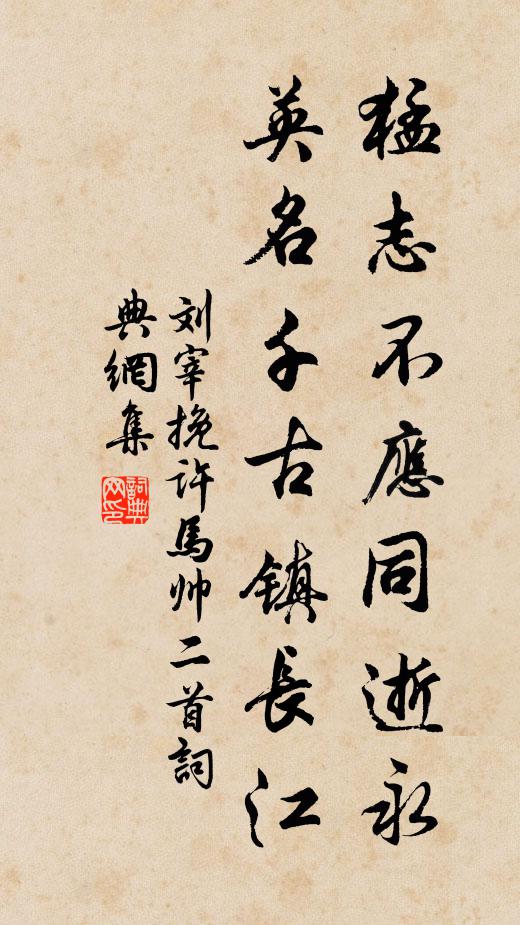 猛志不應同逝永
英名千古镇長江
刘宰挽许馬帅二首詞
典網集
詞典
网印